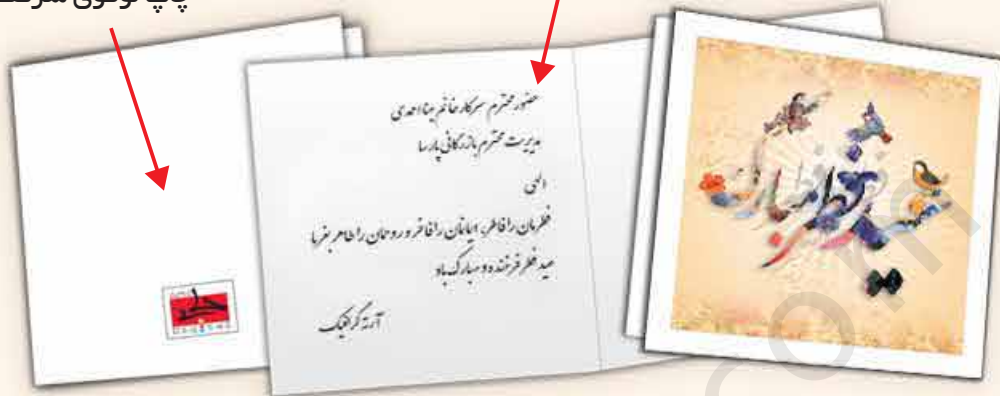 چاپ لوگوی شرکت
حضور محترم سرکار خانم مینا احمدی
مدیریت محترم بازرگانی پارسا
الهی
فطرمان را فاطر، ایمانمان را فاخر و روحمان را طاهر بفرما
عید فطر فرخنده و مبارک باد
آرته گرافیک
عید فطر مبارک
com